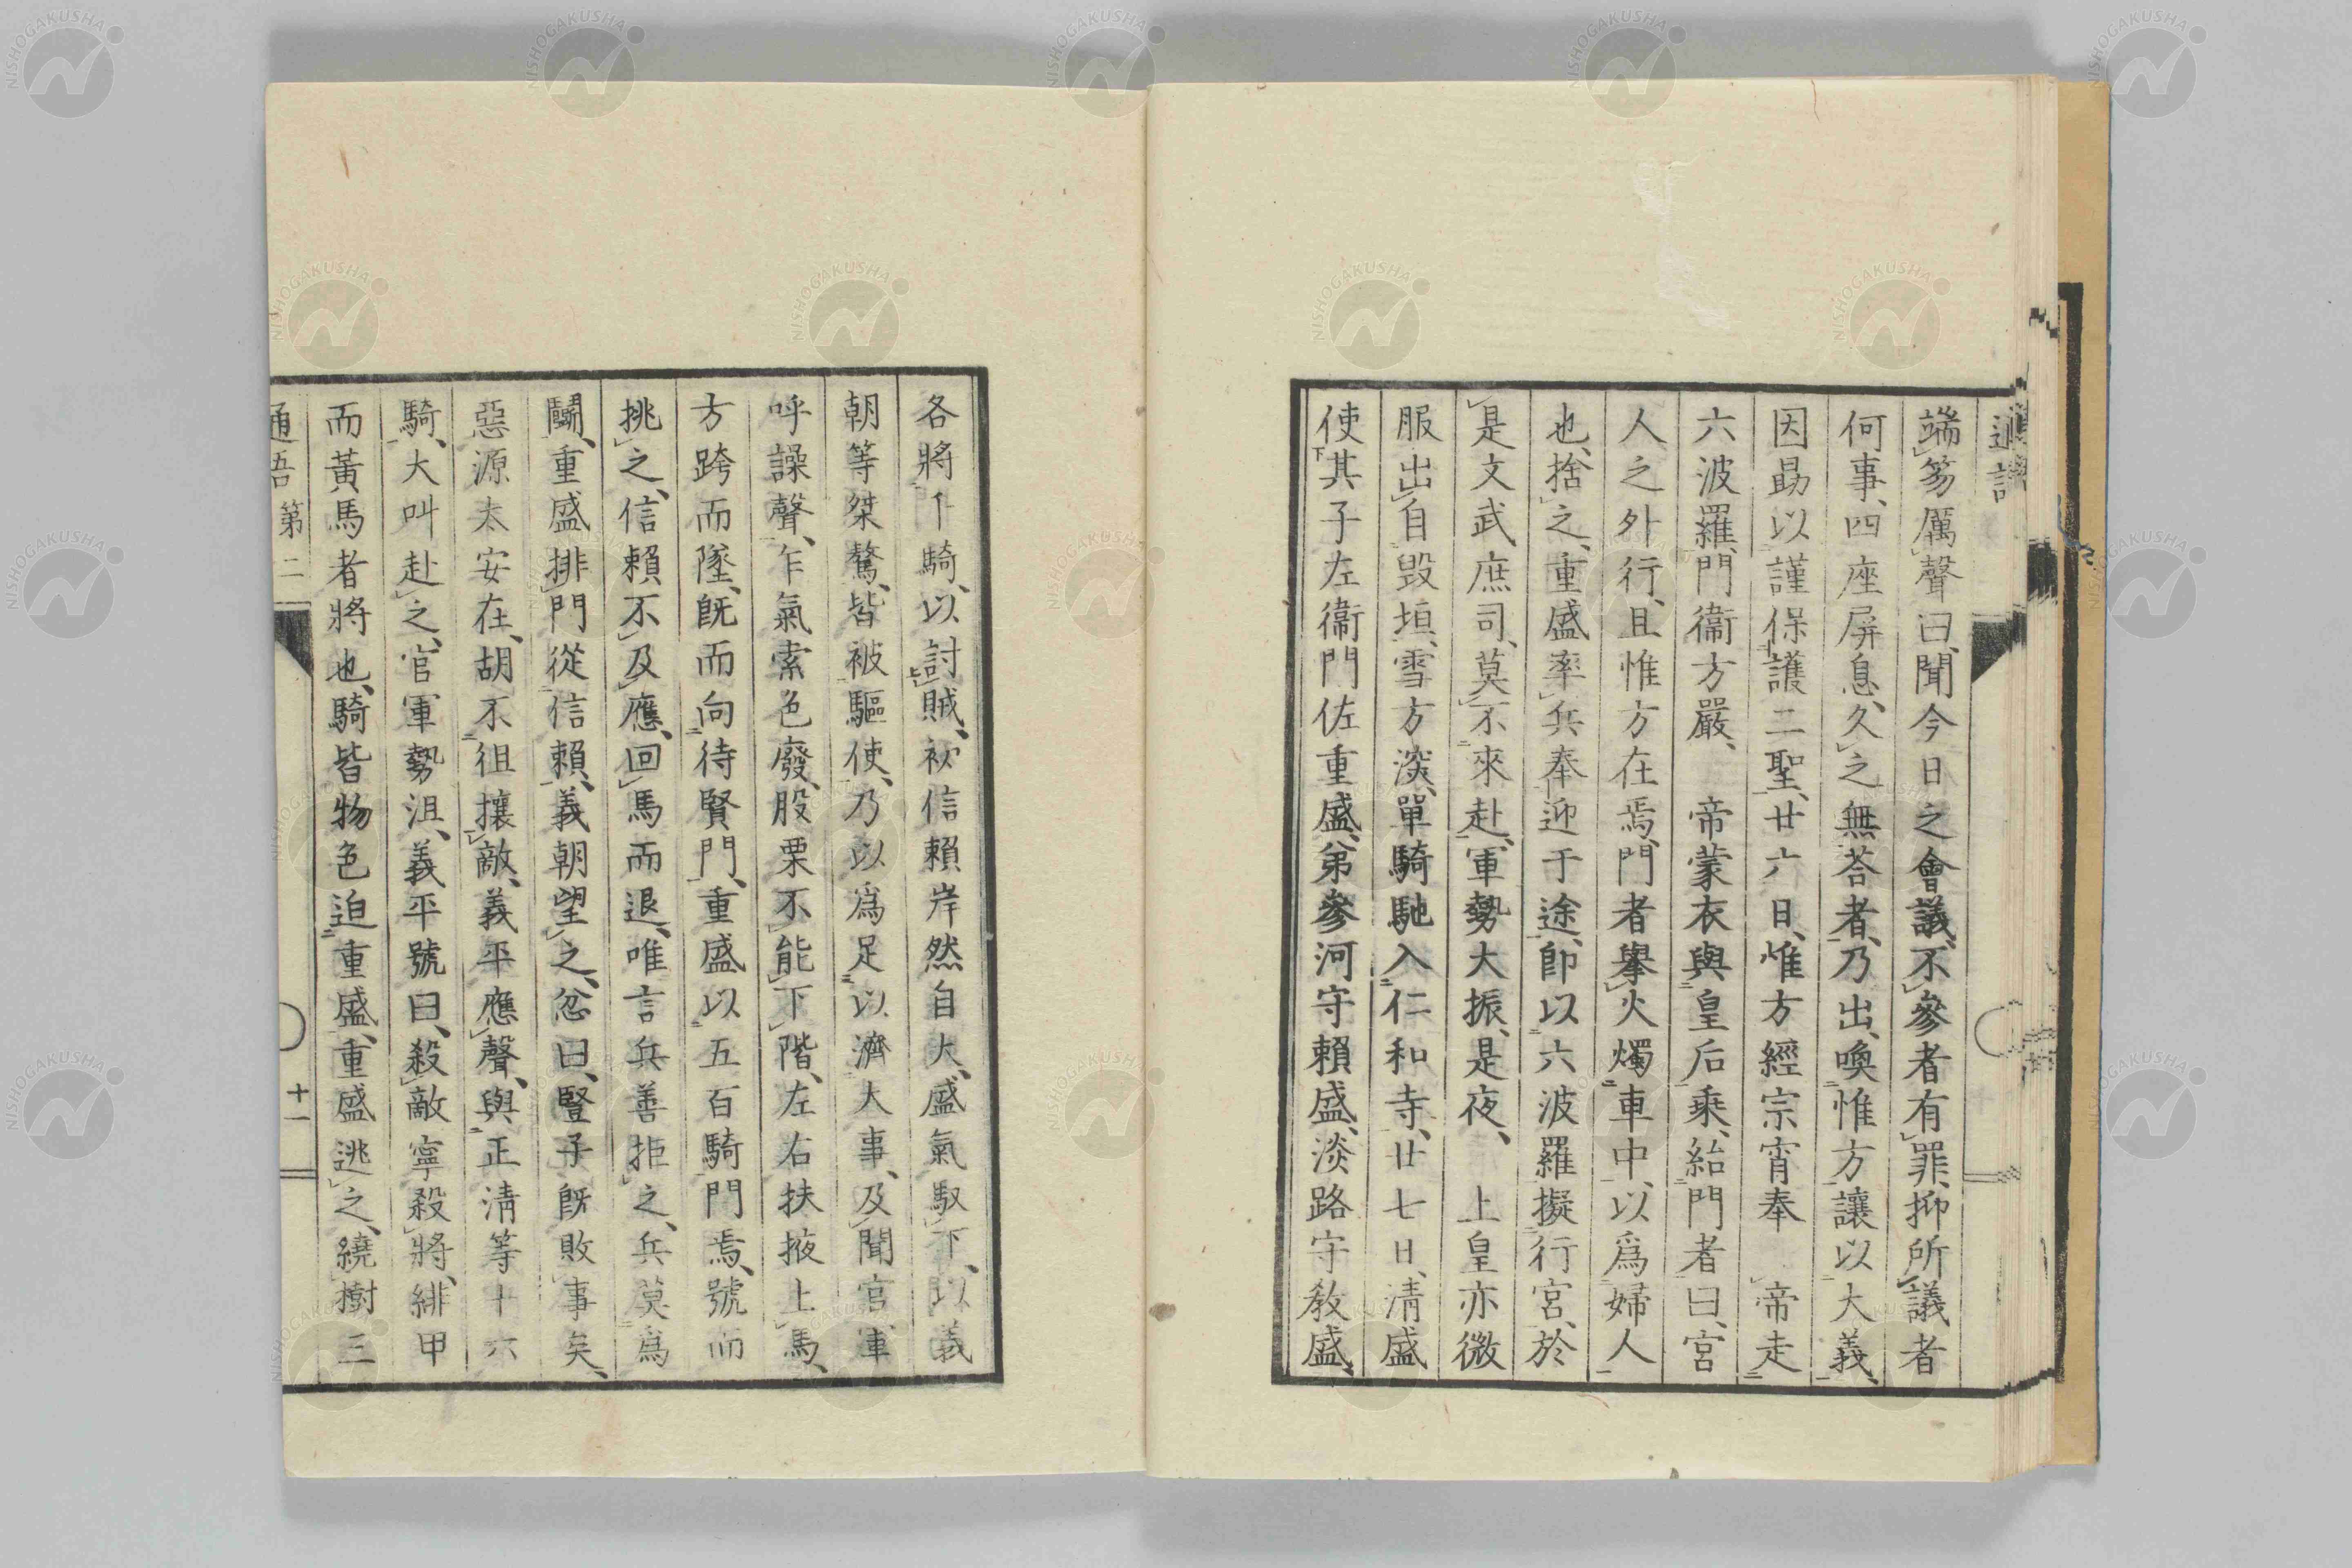 通語
端笏厲聲曰、聞今日之會議、不參者有罪、抑所議者
何事、四座屏息、久之無荅者、乃出、喚惟方讓以大義、
因勗以謹保護二聖、廿六日、惟方經宗宵奉 帝走
六波羅、門衞方嚴、 帝蒙衣與皇后乘、紿門者曰、宮
人之外行、且惟方在焉、門者擧火燭車中、以爲婦人
也、捨之、重盛率兵奉迎于途、卽以六波羅擬行宮、於
是文武庶司、莫不來赴、軍勢大振、是夜、 上皇亦微
服出自毀垣、雪方深、單騎馳入仁和寺、廿七日、清盛
使其子左衞門佐重盛、弟參河守賴盛、淡路守敎盛、
各將千騎、以討賊、初信賴岸然自大、盛氣馭下、以義
朝等桀驁、皆被驅使、乃以爲足以濟大事、及聞官軍
呼譟聲、乍氣索色廢、股栗不能下階、左右扶掖上馬、
方跨而墜、既而向待賢門、重盛以五百騎門焉、號而
挑之、信賴不及應、回馬而退、唯言兵善拒之、兵莫爲
鬭、重盛排門從信賴、義朝望之、忿曰、豎子既敗事矣、
惡源太安在、胡不徂攘敵、義平應聲、與正清等十六
騎、大叫赴之、官軍勢沮、義平號曰、殺敵寧殺將、緋甲
而黃馬者將也、騎皆物色迫重盛、重盛逃之、繞樹三
通語 第二 十一
NISHOGAKUSHA